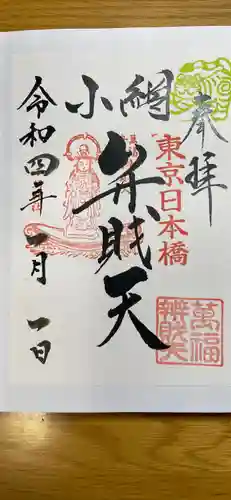 奉拝
東京日本橋
小網
弁財天
萬福
辨財天
令和四年
一月
一日